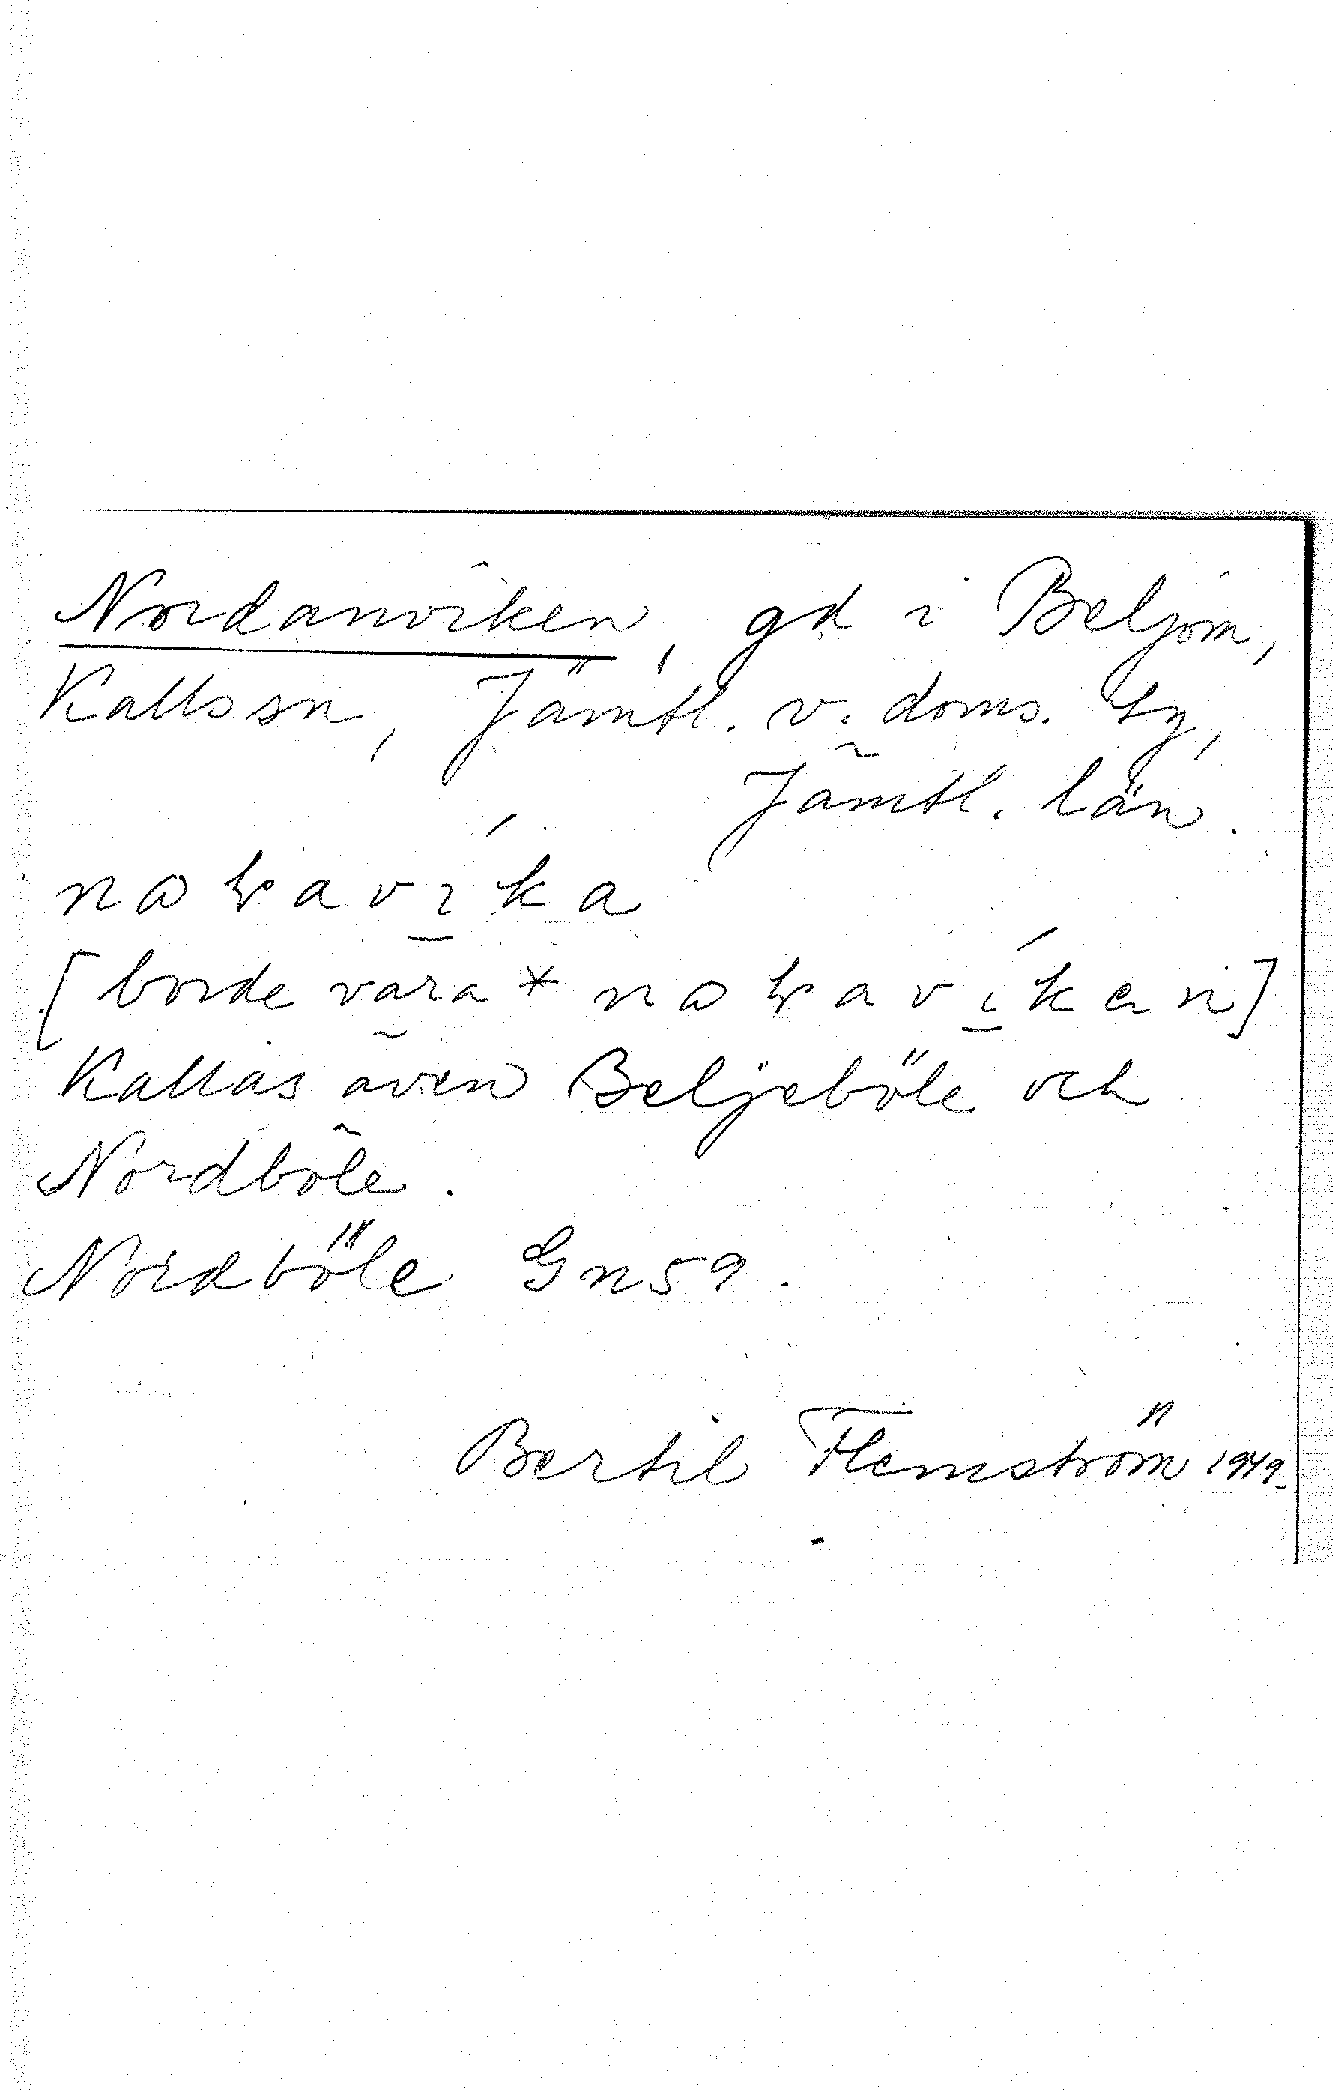 Nordanviken, gd i Beljom,
Kalls sn, Jämtl. v. doms. tg,
Jämtl. län.
na w̵aví̲ka
[borde vara *
Kallas även Beljeböle och
Nordböle.
Nordböle Gn59.
Bertil Flemström 1949.